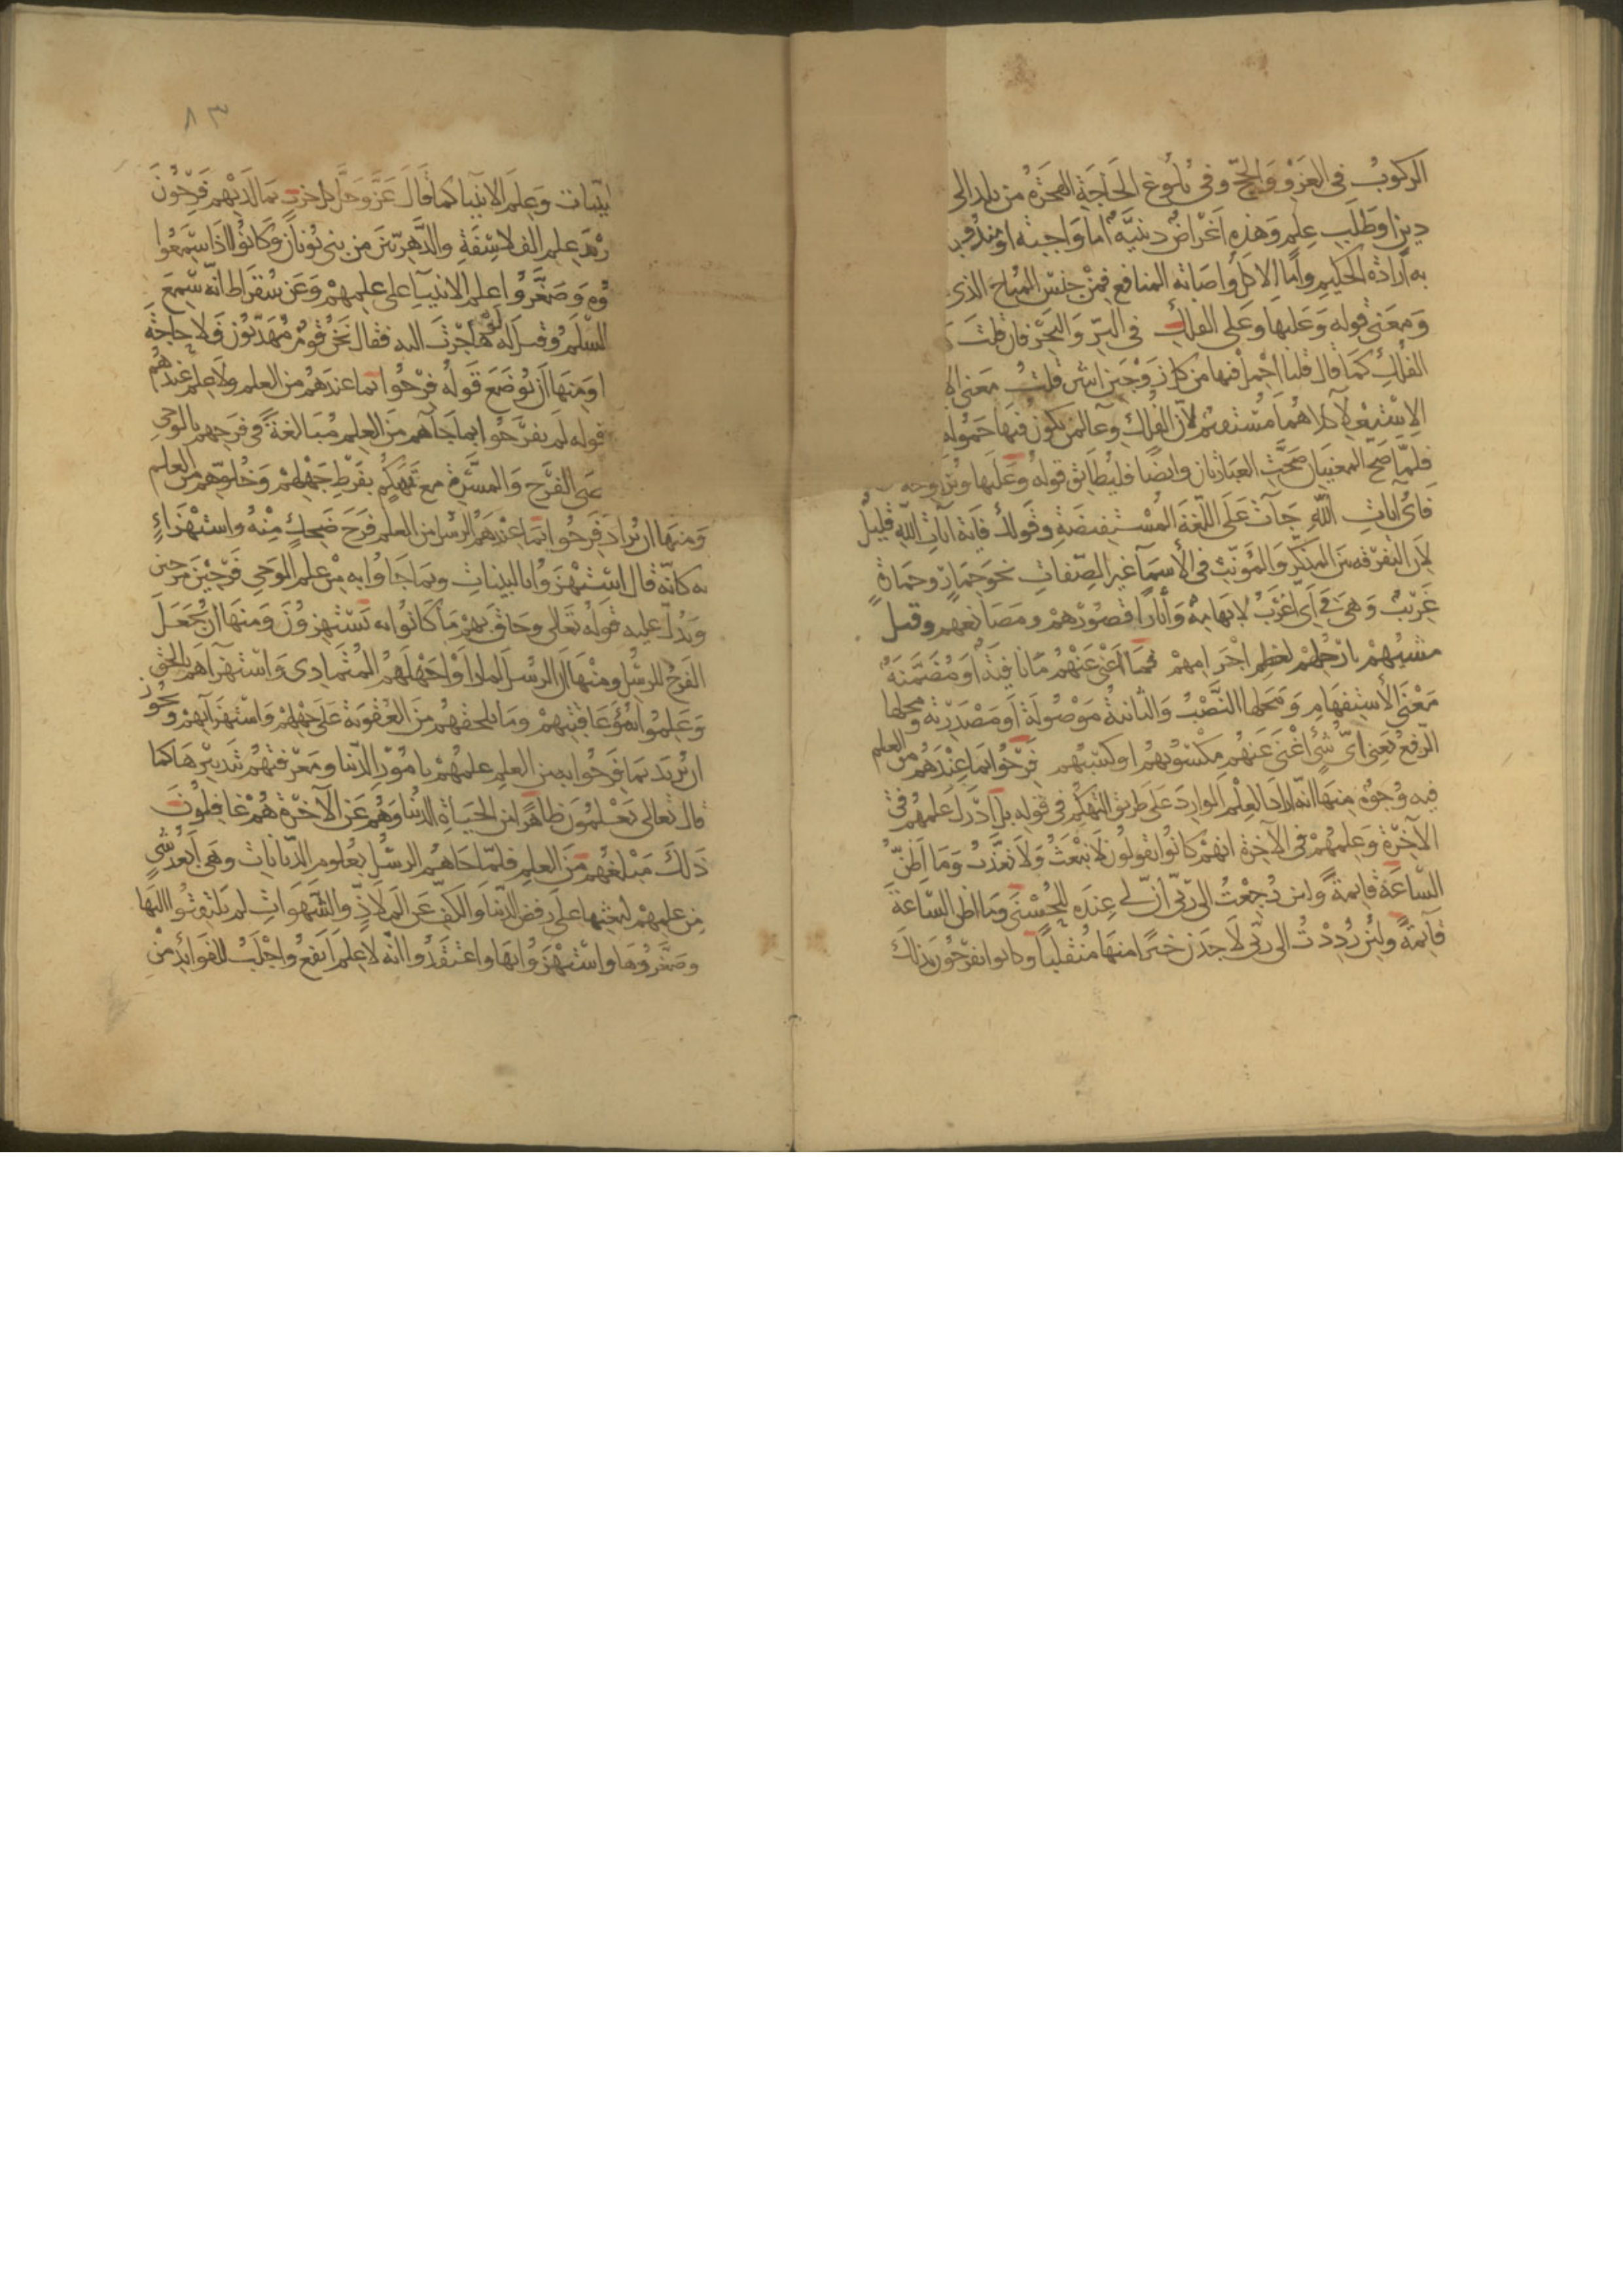 الركوبُ في الغزو والحجّ وفي بلوغ الحاجة الهجرةُ من بلد الى
دين او طلب علم وهذه اغراضٌ دينيّة اما واجبة او مندوب
به ارادة الحكيم واما الاكل واصابة المنافع فمن جنس المباح الذى
ومعنى قوله وعليها وعلى الفلك في البرّ والبحر فان قلت
الفلك كما قال قلنا احمل فيها من كل زوجين اثنين قلت معنى الا
الاستعلا كلاهما مستقيم لان الفلك وعآ لمن يكون فيها حمولة
فلمّا صح المعنيان صحّت العبارتان وايضا فليطابق قوله وعليها ويزاوجه
فاىّ آيات الله جآت على اللغة المستفيضة وقولك فاية آيات الله قليل
لان التفرقة بين المذكر والمؤنث في الأسمآ غير الصفات نحو حمار وحمارةٍ
غريبٌ وهى في اىّ اغرب لابهامه وآثارا قصورهم ومصانعهم وقيل
مشيهم بارجلهم لعظم اجرامهم فما اغنى عنهم ما نافية او مضمنة
معنى الأستفهام ومحلها النصب والثانية موصولة او مصدرية ومحلها
الرفع يعنى اىّ شئ اغنى عنهم مكسوبهم او كسبهم فرحوا بما عندهم من العلم
فيه وجوه منها انه اراد العلم الوارد على طريق التهكم في قوله بل ادّرك علمهم في
الآخرة وعلمهم في الآخرة انهم كانوا يقولون لا نبعث ولا نعذّب وما اظنّ
الساعة قايمة ولئن رجعت الى ربّى انّ لى عنده للحسنى وما اظن الساعة
قآيمةً ولئن رُددت الى ربّى لاجدن خيرا منها منقلبا وكانوا يفرحون بذلك
٨٣
البيّنات وعلم الانبيا كما قال عزّ وجلّ كل حزب بما لديهم فرحون
علم الفلاسفة والدّهريّين من بنى يونان وكانوا اذا سمعوا
وصغّروا علم الانبيآ على علمهم وعن سقراط انه سمع
السلم وقيل له لو هاجرت اليه فقال نحن قوم مهذّبون فلا حاجة
ومنها ان يوضع قوله فرحوا بما عندهم من العلم ولا علم عندهم
قوله لم يفرحوا بما جآهم من العلم مبالغة في فرحهم بالوحى
الفرح والمسرّة مع تهكّم بفرط جهلهم وخلوّهم من العلم
ومنها ان يراد فرحوا بما عند الرسل من العلم فرح ضحك منه واستهزاء
به كانّه قال استهزؤا بالبينات وبما جاؤا به من علم الوحى فرحين مرحين
ويدل عليه قوله تعالى وحاق بهم ما كانوا به يستهزؤن ومنها ان يجعل
الفرح للرسل ومعناه ان الرسل لما راوا جهلهم المتمادى واستهزآهم بالحق
وعلموا سوء عاقبتهم وما يلحقهم من العقوبة على جهلهم واستهزآئهم ويجوز
ان يريد بما فرحوا به من العلم علمهم بامور الدّنيا ومعرفتهم بتدبيرها كما
قال تعالى يعلمون ظاهرا من الحياة الدنيا وهم عن الآخرة هم غافلون
ذلك مبلغهم من العلم فلمّا جاهم الرسل بعلوم الدّيانات وهى ابعد شى
من علمهم لبعثها على رفض الدّنيا والكفّ عن الملاذّ والشّهوات لم يلتفتوا اليها
وصغّروها واستهزؤا بها واعتقدوا انّه لا علم انفع واجلب للفوائد من